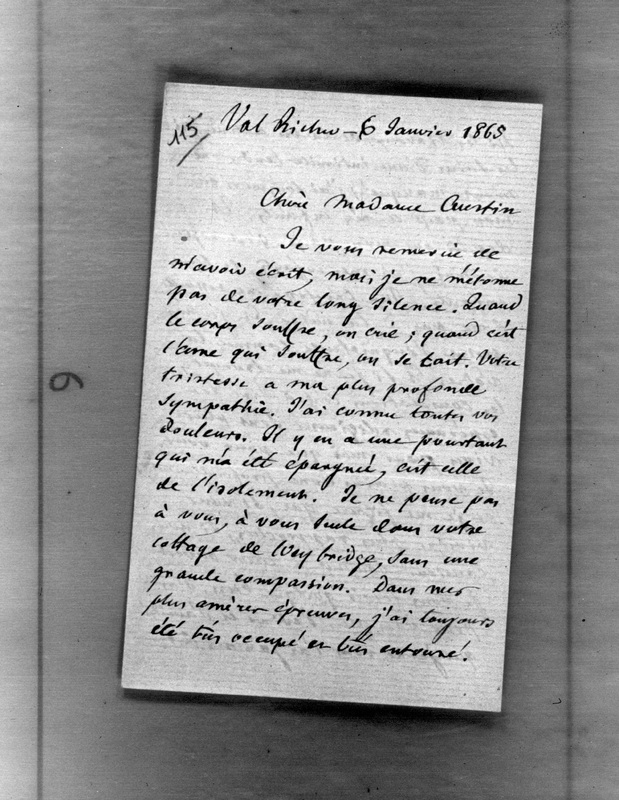 115
Val Richer – 6 Janvier 1865
Chère Madame Austin
Je vous remercie de
m'avoir écrit, mais je ne m'étonne
pas de votre long silence. Quand
le corps souffre, on crie ; quand c'est
l'âme qui souffre, on se tait. Votre
tristesse a ma plus profonde
sympathie. J'ai connu toutes vos
douleurs. Il y en a une pourtant
qui m'a été épargnée, c'est celle
de l'isolement. Je ne pense pas
à vous, à vous seule dans votre
cottage de Weybridge, sans une
grande compassion. Dans mes
plus amères épreuves, j'ai toujours
été très occupé et très entouré.
6